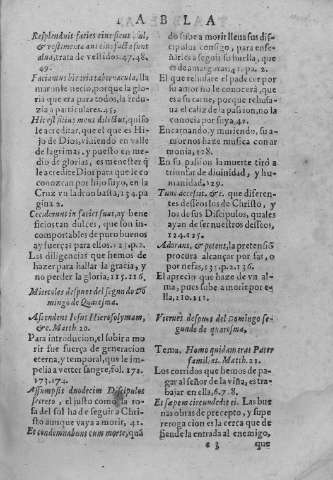 TABLA
Resplenduit facies eius sicut sol,
& vestimenta autem facta sunt
alba, trata de vestidos. 47. 48.
49.
Faciamus hic tria tabernacula, llama
a le necio, porque la gloria
que era para todos, la reduzia
a particulares. 45.
Hic est filius meus dilectus, quiso
le acreditar, que el que es Hijo
de Dios, viniendo en valle
de lagrimas, y puesto en medio
de glorias, es menester q̃
le acredite Dios para que le co
nozcan por hijo suyo, en la
Cruz vn ladron basta, 134. pa
gina 2.
Ceciderunt in facies suas, ay bene
ficios tan dulces, que son in-
comportables de puro buenos
ay fuerças para ellos. 131. p. 2.
Las diligencias que hemos de
hazer para hallar la gracia, y
no perder la gloria, 115. 116.
Miercoles despues del segundo Do
mingo de Quaresma.
Ascendens Iesus Hierosolymam,
&c. Matth. 20.
Para introducion, el subir a mo
rir fue fuerça de generacion
eterna, y temporal, que le im-
pelia a verter sangre, fol. 172.
173. 174.
Assumpsit duodecim Discipulos
secreto, el justo como la ro-
sa del sol ha de seguir a Chri-
sto aunque vaya a morir, 41.
Et condemnabunt eum morte, quã
do sube a morir lleua sus dis-
cipulos consigo, para ense-
ñarles a seguir su huella, que
es de amargura. 41. p. 2.
El que rehusare el padecer por
su amor no le conocerà, que
essa su carne, por que rehusa-
ua el caliz de la passion, no la
conocia por suya, 42.
Encarnando, y muriendo, su a-
mor nos haze musica con ar
monia, 128.
En su passion la muerte tirò a
triunfar de diuinidad, y hu-
manidad. 129.
Tunc accessit, &c. que diferen-
tes desseos los de Christo, y
los de sus Discipulos, quales
ayan de ser nuestros desseos,
124. 125.
Adorans, & petens, la pretensiõ
procura alcançar por fas, o
por nefas, 135. p. 2. 136.
El aprecio que haze de vn al-
ma, pues sube a morir por e-
lla, 210. 211.
Viernes despues del Domingo se-
gundo de quaresma.
Tema, Homo quidam erat Pater
familias. Matth. 21.
Los corridos que hemos de pa-
gar al señor de la viña, es tra-
bajar en ella, 6. 7. 8.
Et sæpem circumdedit ei. Las bue
nas obras de precepto, y supe
rerogacion es la cerca que de
fiende la entrada al enemigo,
¢ 3 que